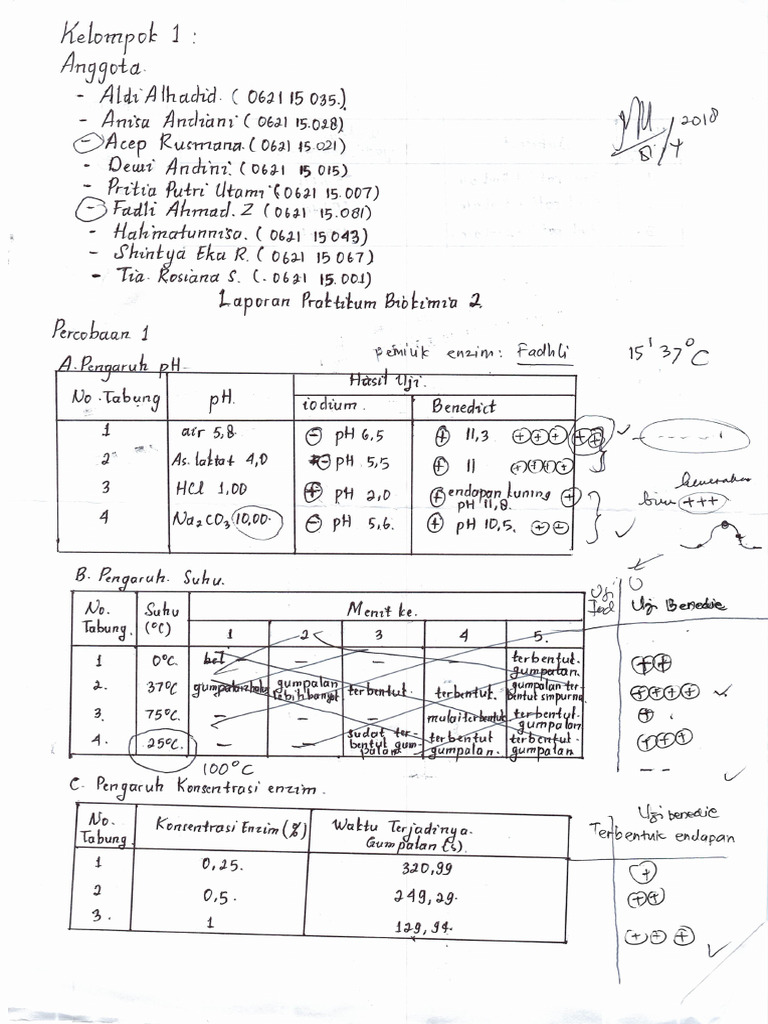 Kelompok 1 :
Anggota.
- Aldi Alhadid. ( 0621 15 035.)
- Anisa Andiani ( 0621 15.028)
- Acep Rusmana. ( 0621 15.021)
- Dewi Andini ( 0621 15 015)
- Pritia Putri Utami ( 0621 15.007)
- Fadli Ahmad. Z ( 0621 15.081)
- Halimatunnisa. ( 0621 15 043)
- Shintya Eka R. ( 0621 15 067)
- Tia Rosiana S. (. 0621 15.001)
2018
Laporan Praktikum Biokimia 2.
Percobaan 1
pemilik enzim : Fadhli 15' 37°C
A. Pengaruh pH.
No. Tabung pH. Hasil Uji.
iodium. Benedict
1 air 5,8. - pH 6,5 + 11,3 + + + + +
2 As. laktat 4,0 - pH 5,5 + 11 + + + +
3 HCl 1,00 + pH 2,0 + endapan kuning pH 11,8. +
4 Na2CO3 10,00 - pH 5,6. + pH 10,5. + +
biru +++
B. Pengaruh Suhu.
No. Tabung. Suhu (°C) Menit ke. Uji Iod Uji Benedic
1 2 3 4 5.
1 0°C. - - - terbentuk gumpalan. + +
2. 37°C gumpalan terbentuk. terbentuk. gumpalan terbentuk smpurna + + + +
3. 75°C - - - mulai terbentuk terbentuk gumpalan +
4. 25°C. - - sudat terbentuk gumpalan terbentuk gumpalan. terbentuk gumpalan + + +
100°C - -
C. Pengaruh Konsentrasi enzim.
No. Tabung Konsentrasi Enzim (%) Waktu Terjadinya. Gumpalan (s). Uji benedic Terbentuk endapan
1 0,25. 320,99 +
2 0,5. 249,29. + +
3. 1 129,94. + + +